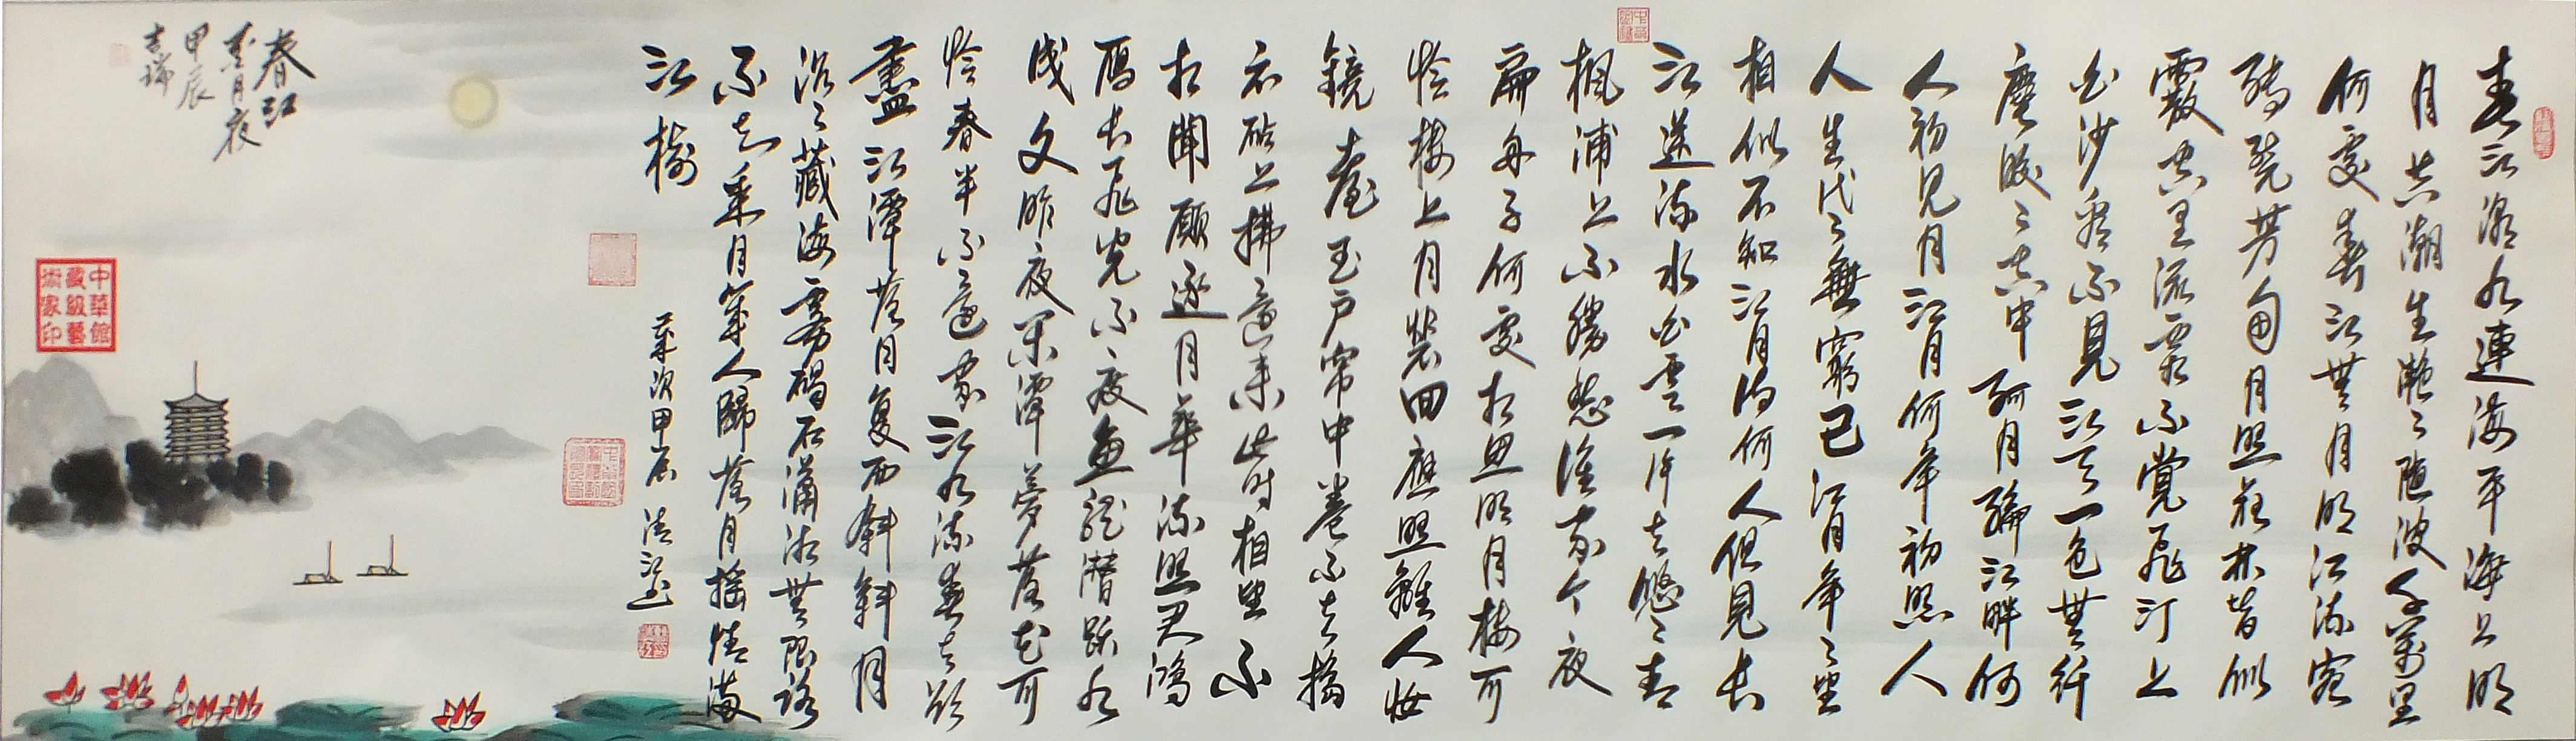 春江潮水連海平海上明
月共潮生灩々随波千萬里
何處春江無月明江流宛
轉繞芳甸月照花林皆似
霰空里流霜不覺飛汀上
白沙看不見江天一色無纤
塵皎々空中孤月輪江畔何
人初見月江月何年初照人
人生代々無窮已江月年々望
相似不知江月待何人但見長
江送流水白雲一片去悠々青
楓浦上不勝愁誰家今夜
扁舟子何處相思明月樓可
憐樓上月裴回應照離人妝
鏡臺玉戶帘中卷不去搗
衣砧上拂還来此時相望不
相聞願逐月華流照君鴻
雁長飛光不度魚龍潜跃水
成文昨夜闲潭夢落花可
憐春半不還家江水流春去欲
盡江潭落月复西斜斜月
沉々藏海霧碣石瀟湘無限路
不知乘月幾人歸落月摇情滿
江樹
歲次甲辰 清江
春江
花月夜
甲辰
吉瑞
中華館
藏級藝
術家印